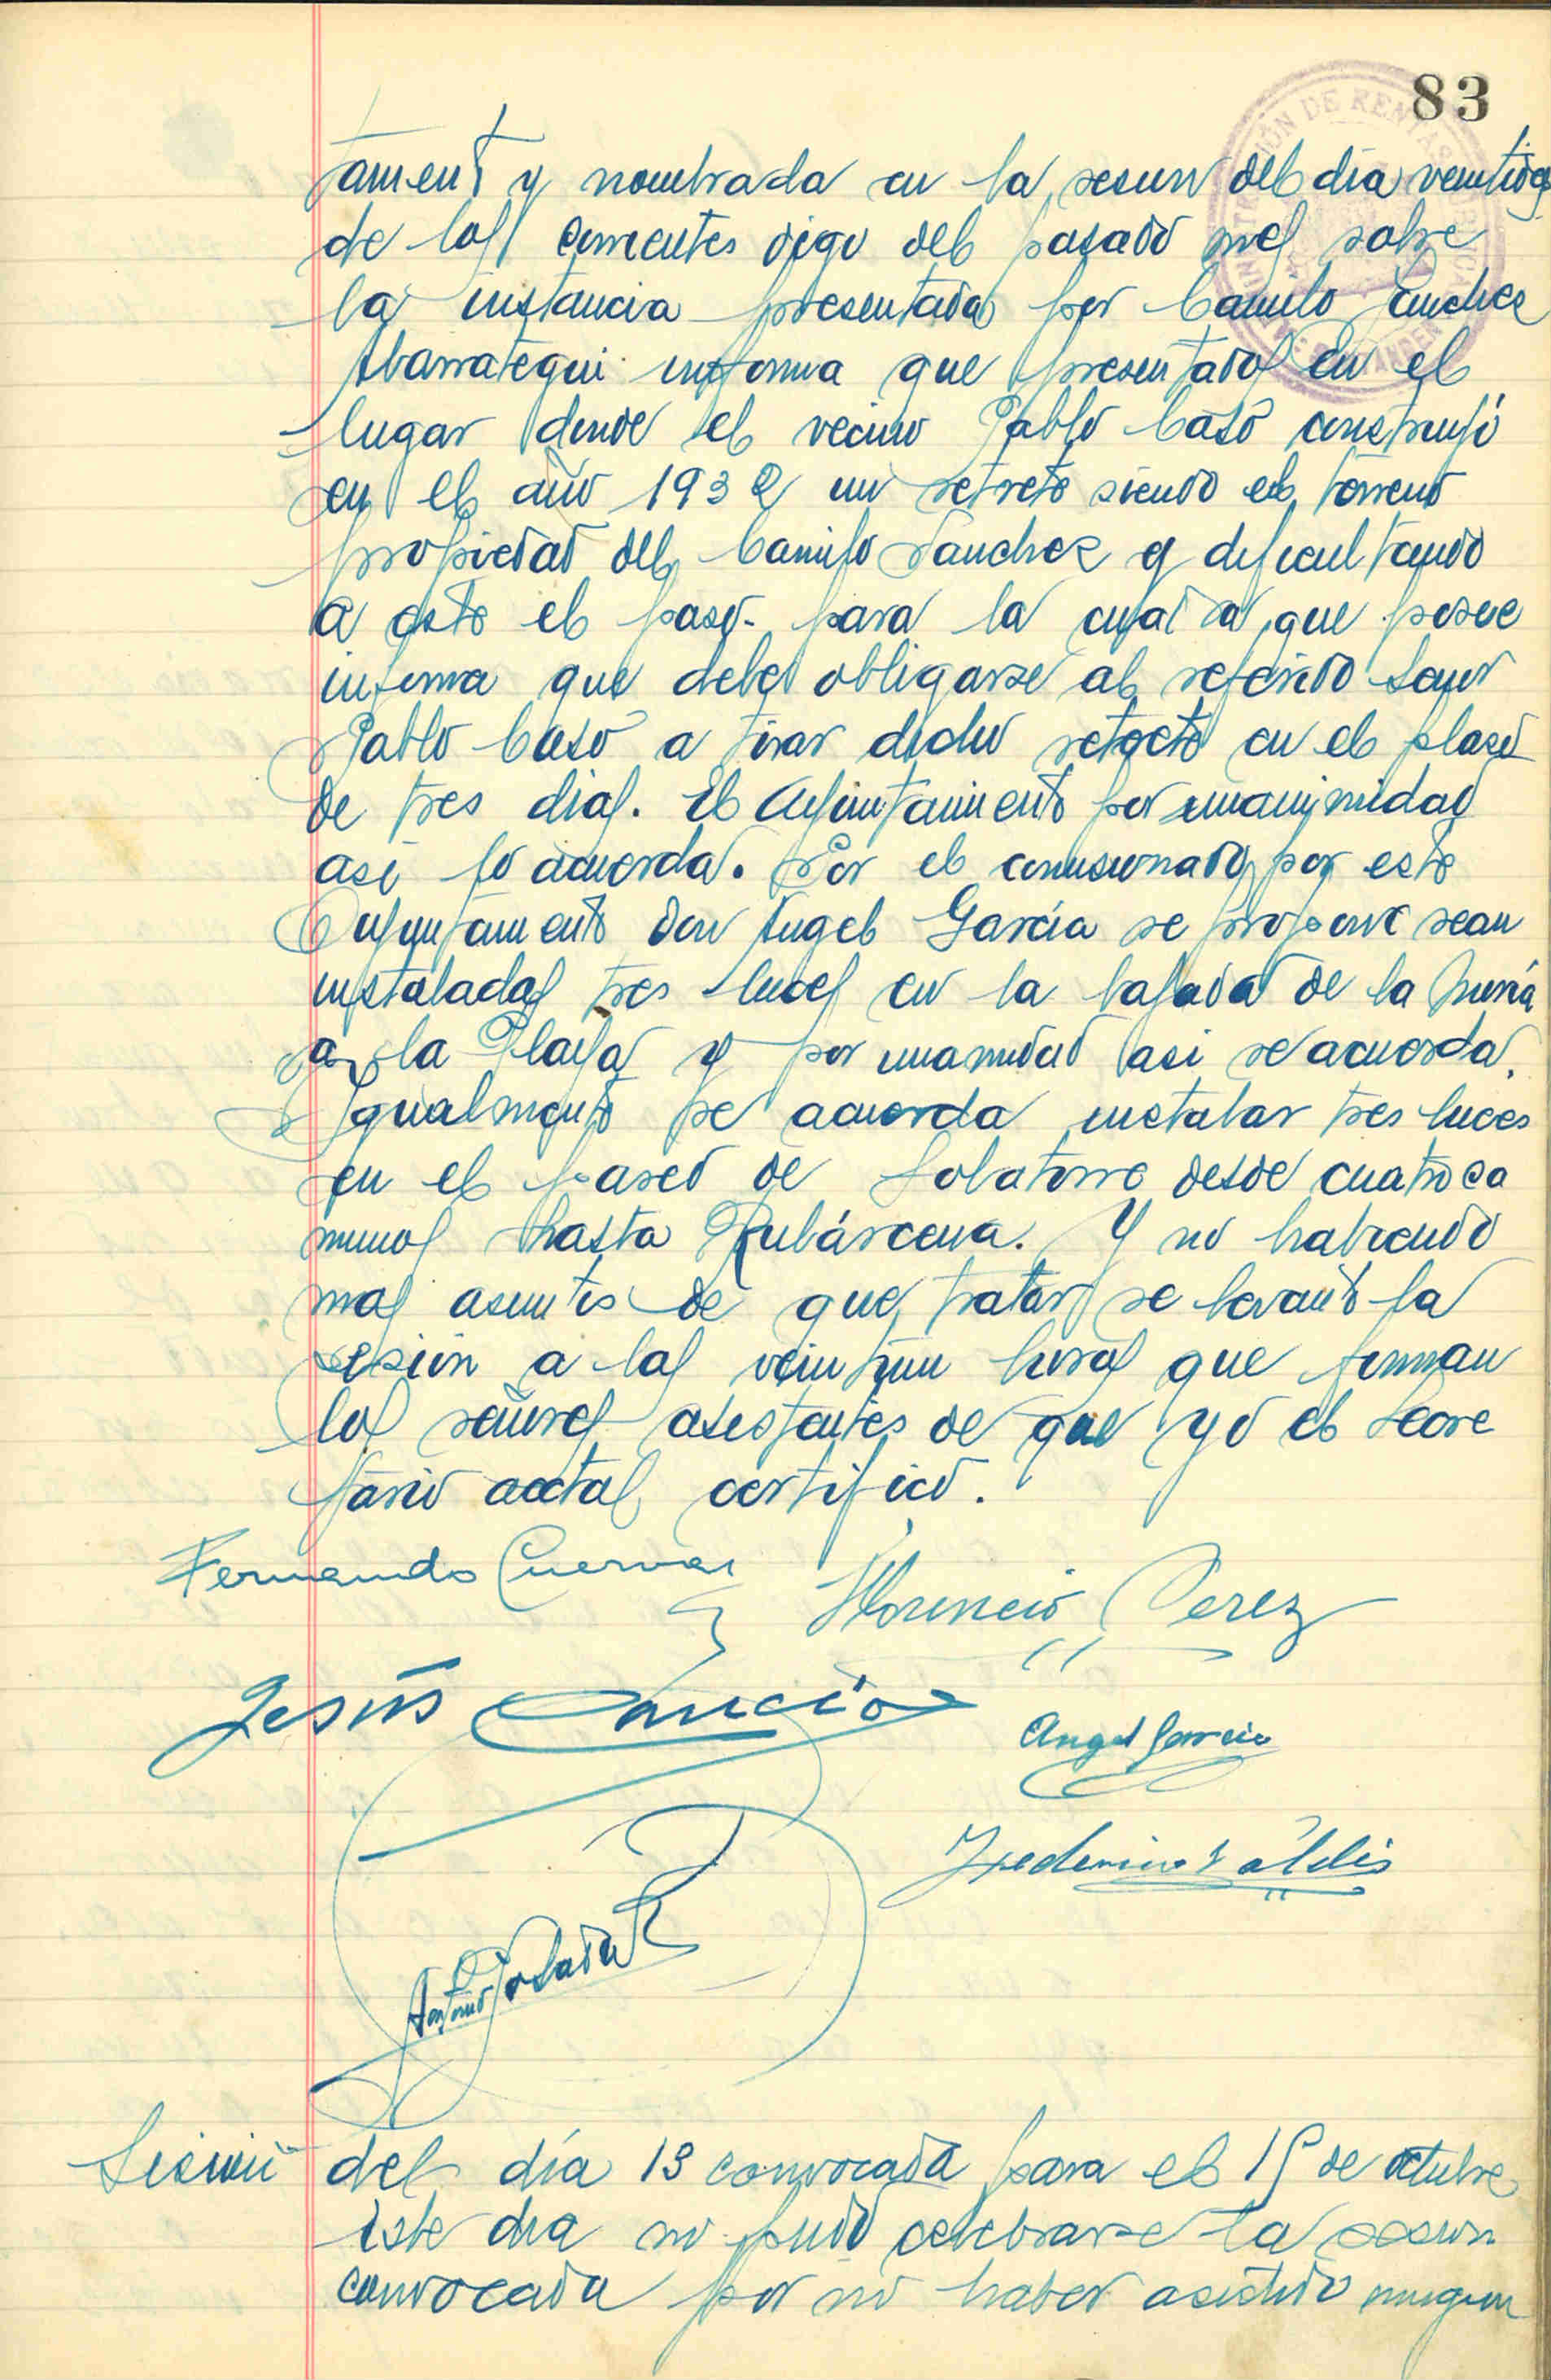 83
tamento y nombrada en la sesion del dia veintidos
de los corrientes digo del pasado mes sobre
la instancia presentada por Camilo Sanchez
Abarrategui informa que presentados en el
lugar donde el vecino Pablo Caso construyó
en el año 1932 un retrete siendo el terreno
propiedad del Camilo Sanchez y dificultando
a este el paso para la cuadra que posee
informa que debe obligarse al referido Señor
Pablo Caso a tirar dicho retrete en el plazo
de tres dias. El Ayuntamiento por unanimidad
asi lo acuerda. Por el comisionado por este
Ayuntamiento don Angel García se propone sean
instaladas tres luces en la bajada de la
a la Playa y por unanimidad asi se acuerda.
Igualmente se acuerda instalar tres luces
en el paseo de Solatorre desde cuatro ca
minos hasta Rubárcena. Y no habiendo
mas asuntos de que tratar se levantó la
sesion a las veintiuna horas que firman
los señores asistentes de que yo el Secre
tario acctal certifico.
Fernando Cuevas
Florencio Perez
Jesús Cancio
Angel Garcia
Federico Valdés
Antonio Posada
Sesión del día 13 convocada para el 15 de octubre
Este dia no pudo celebrarse la sesion
convocada por no haber asistido ningun